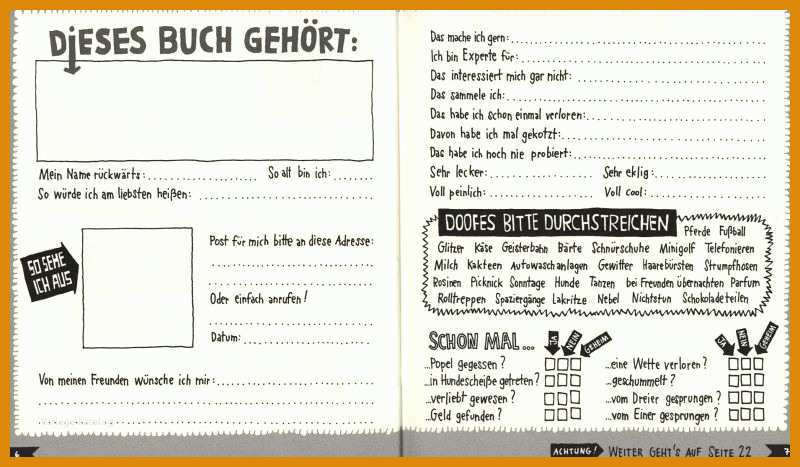 DiESES BUCH GEHÖRT:
Mein Name rückwärts:
So alt bin ich:
So würde ich am liebsten heißen:
SO SEHE
ICH AUS
Post für mich bitte an diese Adresse:
Oder einfach anrufen!
Datum:
Von meinen Freunden wünsche ich mir:
6
Das mache ich gern:
Ich bin Experte für:
Das interessiert mich gar nicht:
Das sammele ich:
Das habe ich schon einmal verloren:
Davon habe ich mal gekotzt:
Das habe ich noch nie probiert:
Sehr lecker: Sehr eklig:
Voll peinlich: Voll cool:
DOOFES BITTE DURCHSTREICHEN Pferde Fußball
Glitzer Käse Geisterbahn Bärte Schnürschuhe Minigolf Telefonieren
Milch Kakteen Autowaschanlagen Gewitter Haarebürsten Strumpfhosen
Rosinen Picknick Sonntage Hunde Tanzen bei Freunden übernachten Parfum
Rolltreppen Spaziergänge Lakritze Nebel Nichtstun Schokoladeteilen
SCHON MAL... JA NEIN GEHEIM JA NEIN GEHEIM
...Popel gegessen? ...eine Wette verloren?
...in Hundescheiße getreten? ...geschummelt?
...verliebt gewesen? ...vom Dreier gesprungen?
...Geld gefunden? ...vom Einer gesprungen?
ACHTUNG! WEITER GEHT'S AUF SEITE 22
7